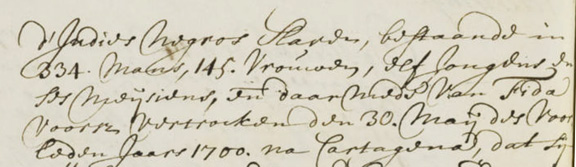 d'Indies Negros Slaven, bestaande in
334. Mans, 145. Vrouwen, elf Jongens en
ses Meijsiens, en daar mede van Fida
voorsz vertrocken den 30. Maij des Voor
leden Jaars 1700. na Cartagena, dat sij